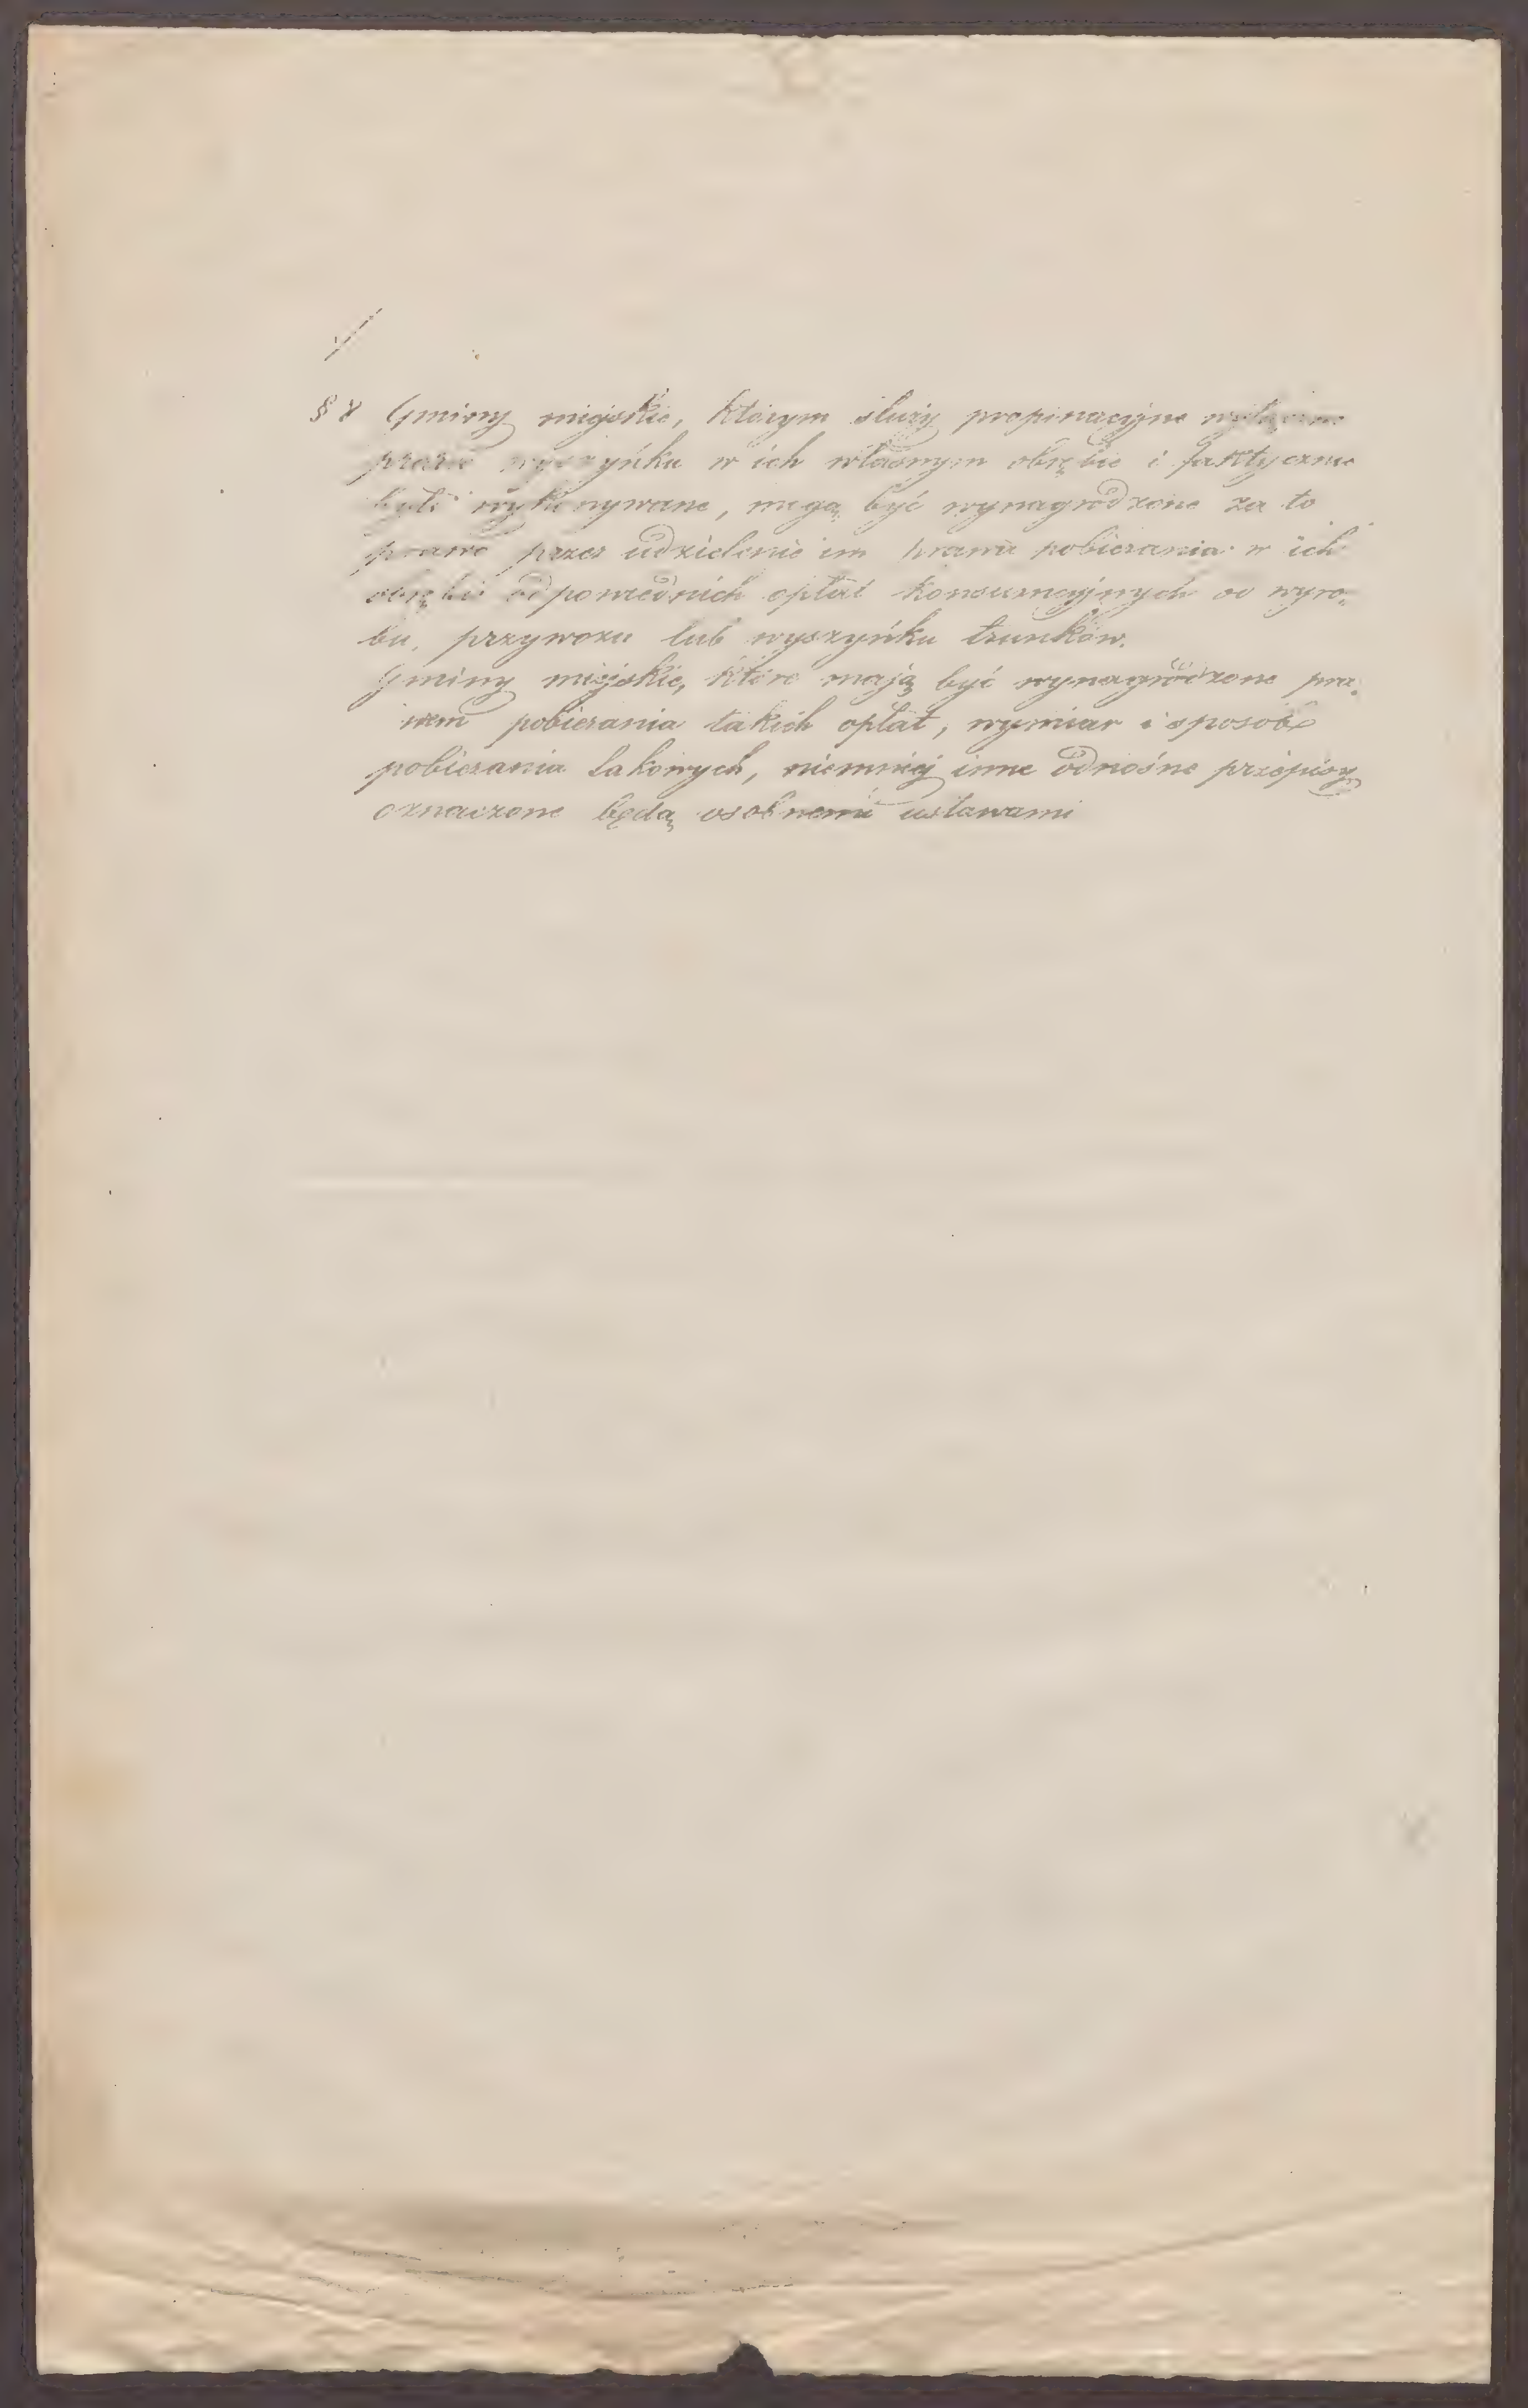 § 8 Gminy miejskie, którym służy propinacyjne wyłączne
prawo wyszyńku w ich własnym obrębie i faktycznie
było wykonywane, mogą być wynagrodzone za to
prawo przez udzielenie im prawa pobierania w ich
obrębie odpowiednich opłat konsumcyjnych od wyro-
bu, przywozu lub wyszyńku trunków.
Gminy miejskie, które mają być wynagrodzone pra-
wem pobierania takich opłat, wymiar i sposób
pobierania takowych, niemniej inne odnośne przepisy
oznaczone będą osobnemi ustawami